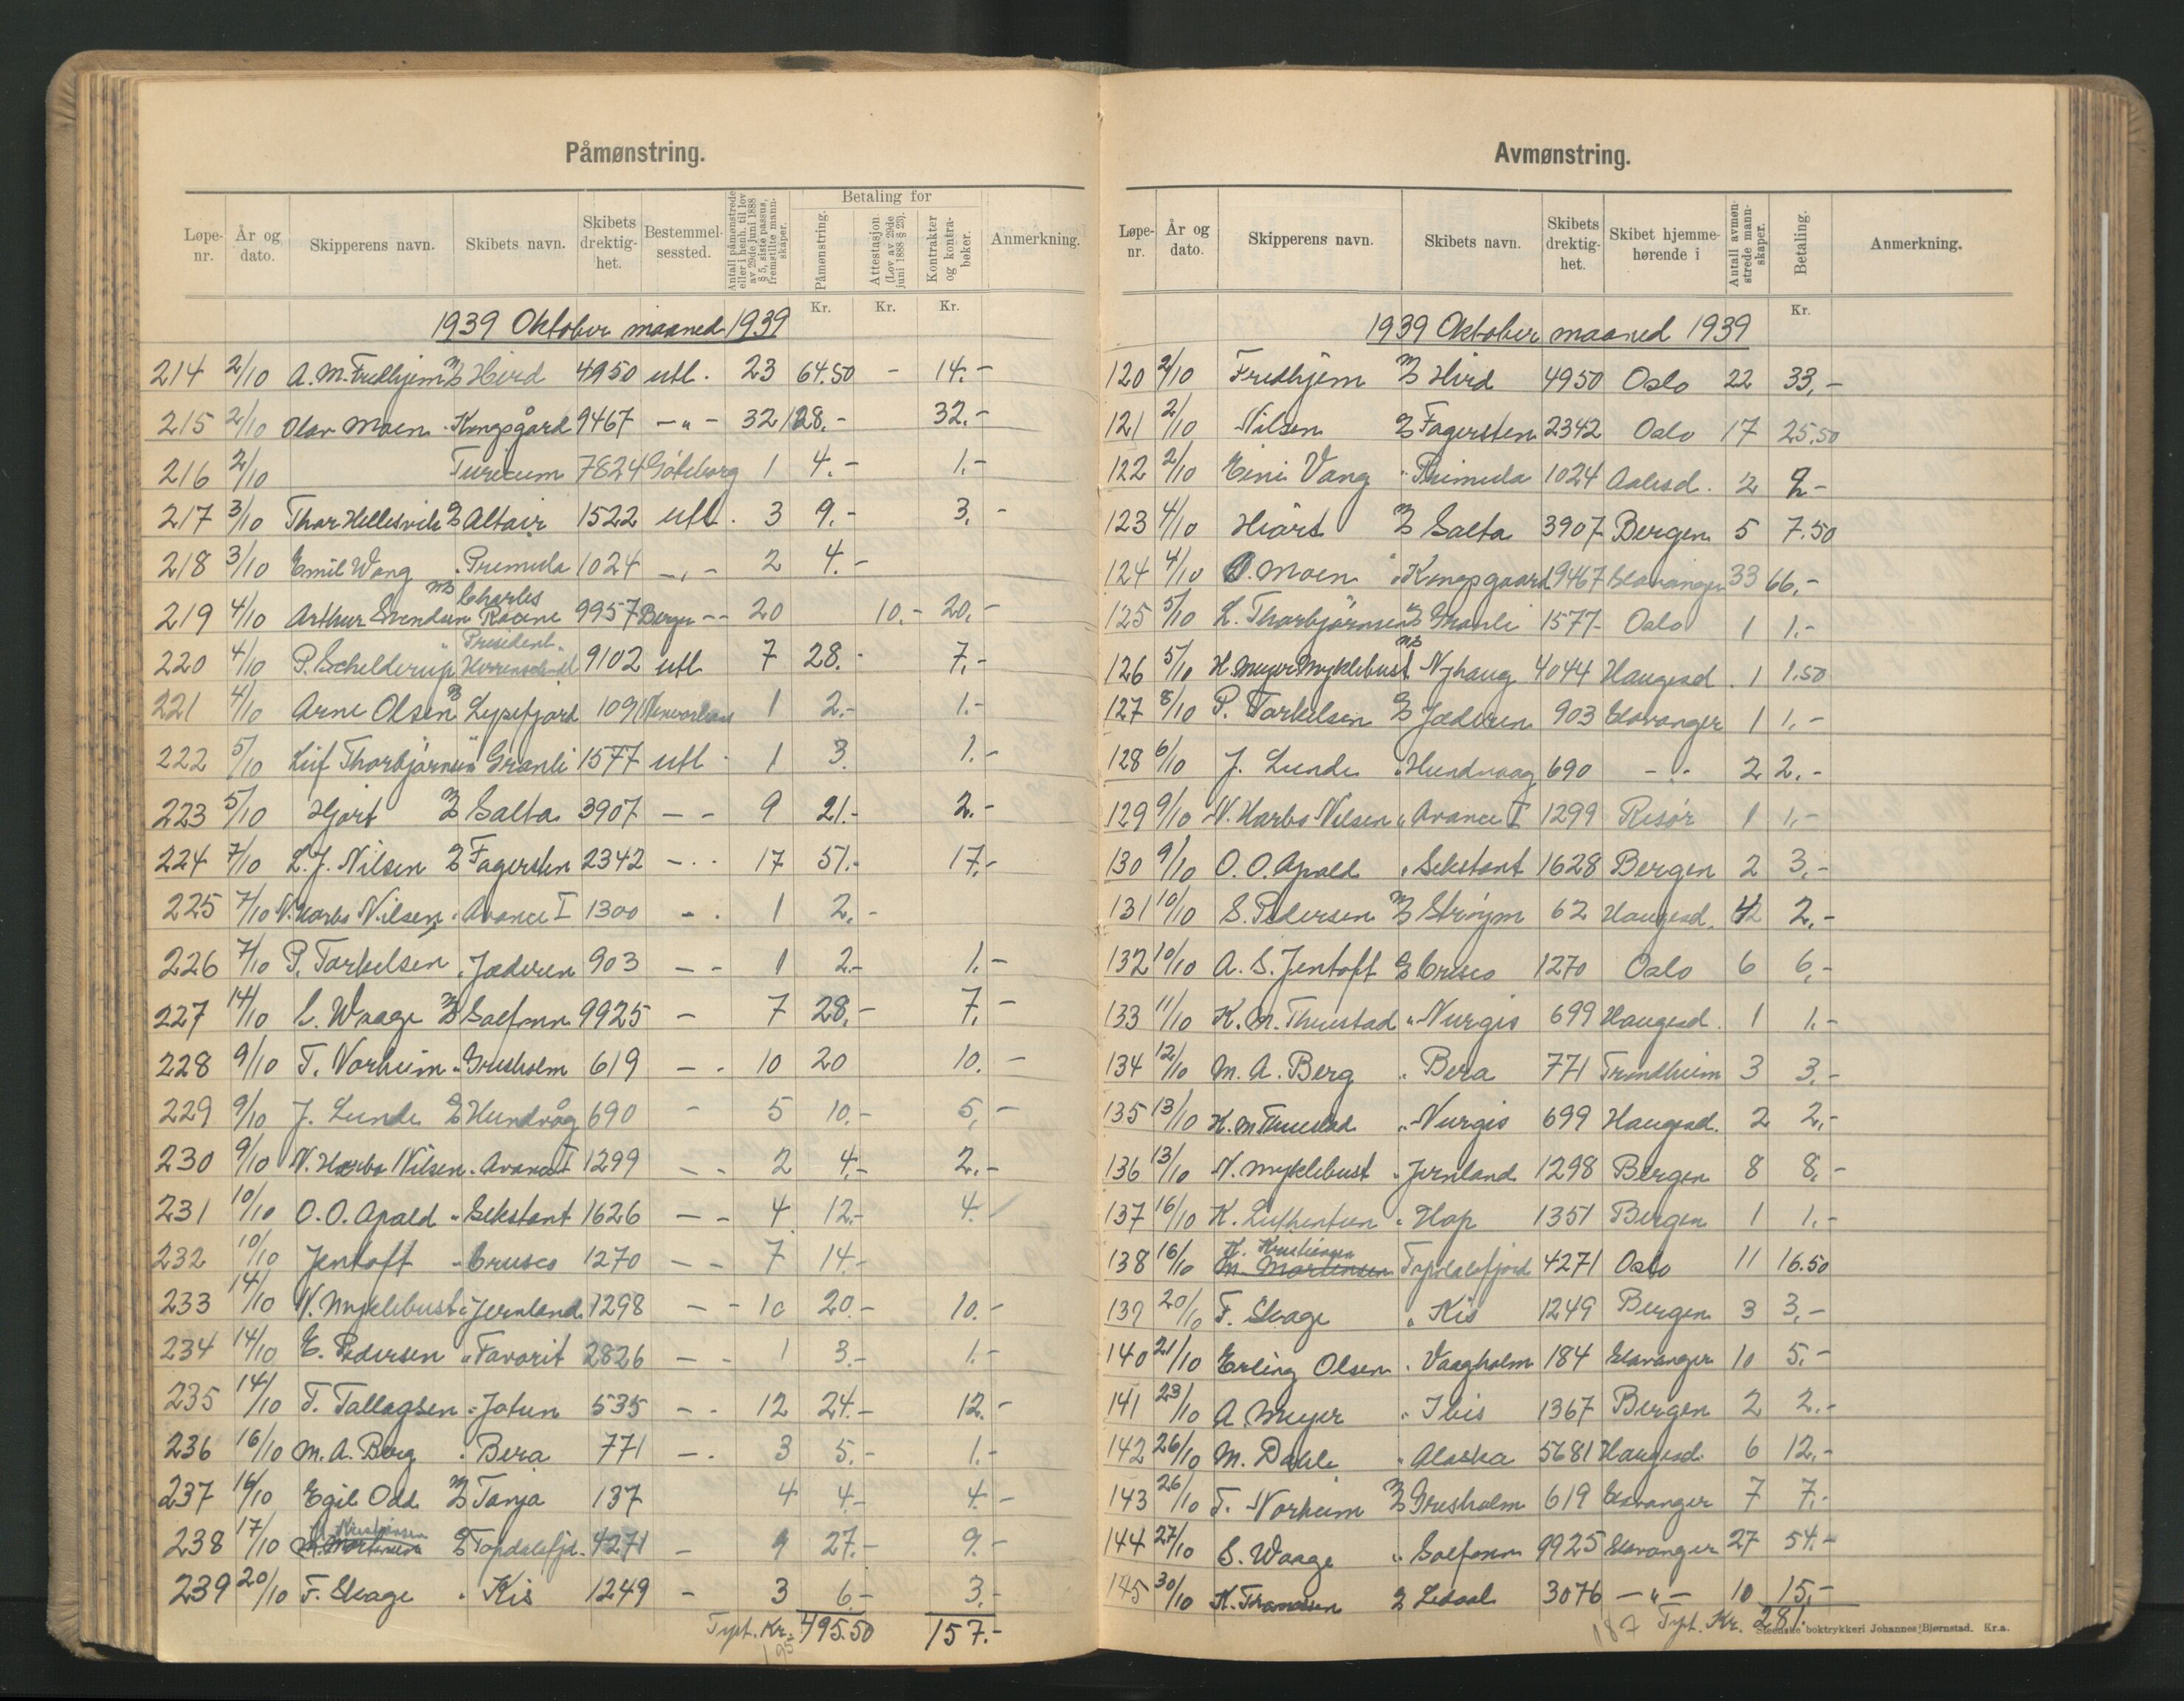 Påmønstring.
Løpe-nr. År og dato. Skipperens navn. Skibets navn. Skibets drektig-het. Bestemmel-sessted. Antall påmønstrede eller i henh. til lov av 29de juni 1888 § 5, siste passus, fremstilte mann-skaper. Betaling for Påmønstring. Attestasjon (Lov av 29de juni 1888 § 23). Kontrakter og kontra-bøker. Anmerkning.
Kr. Kr. Kr.
1939 Oktober maaned 1939
214 2/10 A. M. Fredhjem M/S Hird 4950 utl. 23 64.50 - 14.-
215 2/10 Olav Moen " Kongsgård 9467 -"- 32 128.- 32.-
216 2/10 Turicum 7824 Göteborg 1 4.- 1.-
217 3/10 Thor Hellesvik S/S Altair 1522 utl. 3 9.- 3.-
218 3/10 Emil Wang " Primula 1024 -"- 2 4.-
219 4/10 Arthur Svendsen M/S Charles Racine 9957 Bergen -- 20 10.- 20.-
220 4/10 P. Schelderup " President Herrenschmidt 9102 utl 7 28.- 7.-
221 4/10 Arne Olsen S/S Lysefjord 1091 1 2.- 1.-
222 5/10 Leif Thorbjørnsen " Granli 1577 utl - 1 3. 1.-
223 5/10 Hjort M/S Salta 3907 - - 9 21.- 2.-
224 7/10 L. J. Nilsen S/S Fagersten 2342 - . . 17 51.- 17.-
225 7/10 N. Harbo Nilsen " Avance I 1300 - . 1 2.-
226 7/10 P. Torkelsen " Jæderen 903 - - 1 2.- 1.-
227 14/10 S. Waage M/S Solfonn 9925 - 7 28.- 7.-
228 9/10 T. Norheim " Grisholm 619 - - 10 20 10.-
229 9/10 J. Lunde S/S Hundvåg 690 - 5 10.- 5.-
230 9/10 N. Harbo Nilsen " Avance I 1299 - - 2 4.- 2.-
231 10/10 O. O. Apold " Sekstant 1626 - - 4 12.- 4.
232 10/10 Jentoft " Crusco 1270 - - 7 14.-
233 14/10 N. Myklebust " Jernland 1298 - - 10 20.- 10.-
234 14/10 E. Pedersen " Favorit 2826 - - 1 3.- 1.-
235 14/10 T. Tallagsen " Jotun 535 - - 12 24.- 12.-
236 16/10 M. A. Berg " Bera 771 - . 3 5.- 1.-
237 16/10 Egil Odd M/S Tanja 137 4 4.- 4.-
238 17/10 K. Kristiansen M. Mortensen S/S Topdalsfjd. 4271 - 9 27.- 9.-
239 20/10 F. Skage " Kis 1249 - 3 6.- 3.-
Tyst. Kr. 495.50 157.-
195
Avmønstring.
Løpe-nr. År og dato. Skipperens navn. Skibets navn. Skibets drektig-het. Skibet hjemme-hørende i Antall avmøn-strede mann-skaper. Betaling. Anmerkning.
Kr.
1939 Oktober maaned 1939
120 2/10 Fredhjem M/S Hird 4950 Oslo 22 33.-
121 2/10 Nilsen S/S Fagersten 2342 Oslo 17 25.50
122 2/10 Vang " Primula 1024 Aalesd. 2 2-
123 4/10 Hiort M/S Salta 3907 Bergen 5 7.50
124 4/10 O. Moen " Kongsgaard 9467 Stavanger 33 66.-
125 5/10 L. Thorbjørnsen S/S Granli 1577 Oslo 1 1.-
126 5/10 H. Meyer Myklebust M/S Nyhaug 4044 Haugesd. 1 1.50
127 8/10 P. Torkelsen S/S Jæderen 903 Stavanger 1 1.-
128 6/10 J. Lunde " Hundvaag 690 -"- 2 2.-
129 9/10 N. Harbo Nilsen " Avance I 1299 Risør 1 1.-
130 9/10 O. O. Apold " Sekstant 1628 Bergen 2 3.-
131 10/10 S. Pedersen M/S Strøym 62 Haugesd. 2 2.-
132 10/10 A. S. Jentoft S/S Crusco 1270 Oslo 6 6.-
133 11/10 K. M. Thuestad " Nurgis 699 Haugesd. 1 1.-
134 12/10 M. A. Berg " Bera 771 Trondheim 3 3.-
135 13/10 K. M. Thuestad " Nurgis 699 Haugesd. 2 2.-
136 13/10 N. Myklebust " Jernland 1298 Bergen 8 8.-
137 16/10 K. " Hop 1351 Bergen 1 1.-
138 16/10 K. Kristiansen M. Mortensen Topdalsfjord 4271 Oslo 11 16.50
139 20/10 F. Skage " Kis 1249 Bergen 3 3.-
140 21/10 Erling Olsen " Vaagholm 184 Stavanger 10 5.-
141 23/10 A. Meyer " Ibis 1367 Bergen 2 2.-
142 26/10 M. Dahle " Alaska 5681 Haugesd. 6 12.-
143 26/10 T. Norheim M/S Grisholm 619 Stavanger 7 7.-
144 27/10 S. Waage " Solfonn 9925 Stavanger 27 54.-
145 30/10 K. Thomassen S/S Ledaal 3076 -"- 10 15.-
187 Tyst. Kr. 281.-
Steenske boktrykkeri Johannes Bjørnstad. Kr.a.